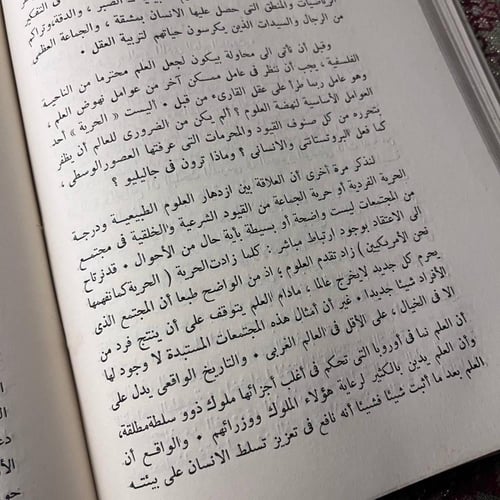 الرياضيات والمنطق التى حصل عليها الانسان بمشقة ، والجماعة العظمى
من الرجال والسيدات الذين يكرسون حياتهم لتربية العقل •
وقبل ان نأتى الى محاولة بيكون لجعل العلم محترما من الناحية
الفلسفية ، يجب أن ننظر فى عامل ممكن آخر من عوامل نهوض العلم ،
وهو عامل ربما طرأ على عقل القارىء من قبل • أليست « الحرية » أحد
العوامل الأساسية لنهضة العلوم ؟ ألم يكن من الضرورى للعالم أن يظفر
بتحرره من كل صنوف القيود والمحرمات التى عرفتها العصور الوسطى ،
كما فعل البروتستانتى والانسانى ؟ وماذا ترون فى جاليليو ؟
لنذكر مرة أخرى أن العلاقة بين ازدهار العلوم الطبيعية ودرجة
الحرية الفردية أو حرية الجماعة من القيود الشرعية والخلقية فى مجتمع
من المجتمعات ليست واضحة أو بسيطة بأية حال من الأحوال • قد نرتاح
الى الاعتقاد بوجود ارتباط مباشر : كلما زادت الحرية ( الحرية كما نفهمها
نحن الأمريكيين ) زاد تقدم العلوم ، اذ من الواضح طبعا أن المجتمع الذى
يحرم كل جديد لا يخرج عالما ، مادام العلم يتوقف على أن ينتج فرد من
الأفراد شيئا جديدا • غير أن أمثال هذه المجتمعات المستبدة لا وجود لها
الا فى الخيال ، على الأقل فى العالم الغربى • والتاريخ الواقعى يدل على
أن العلم نما فى أوروبا التى تحكم فى أغلب أجزائها ملوك ذوو سلطة مطلقة،
وأن العلم يدين بالكثير لرعاية هؤلاء الملوك ووزرائهم • والواقع أن
العلم بعد ما أثبت شيئا فشيئا أنه نافع فى تعزيز تسلط الانسان على بيئته